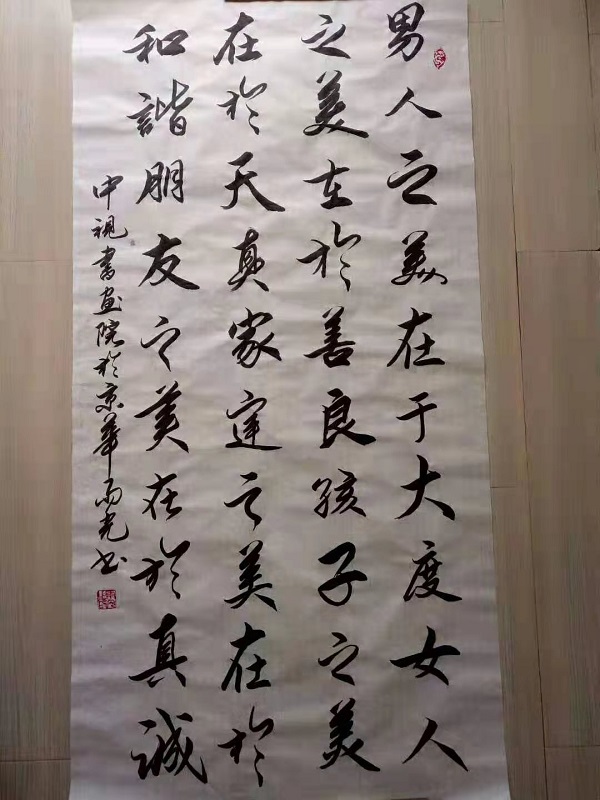 男人之美在于大度女人
之美在於善良孩子之美
在於天真家庭之美在於
和諧朋友之美在於真誠
中視書画院於京華雨光书